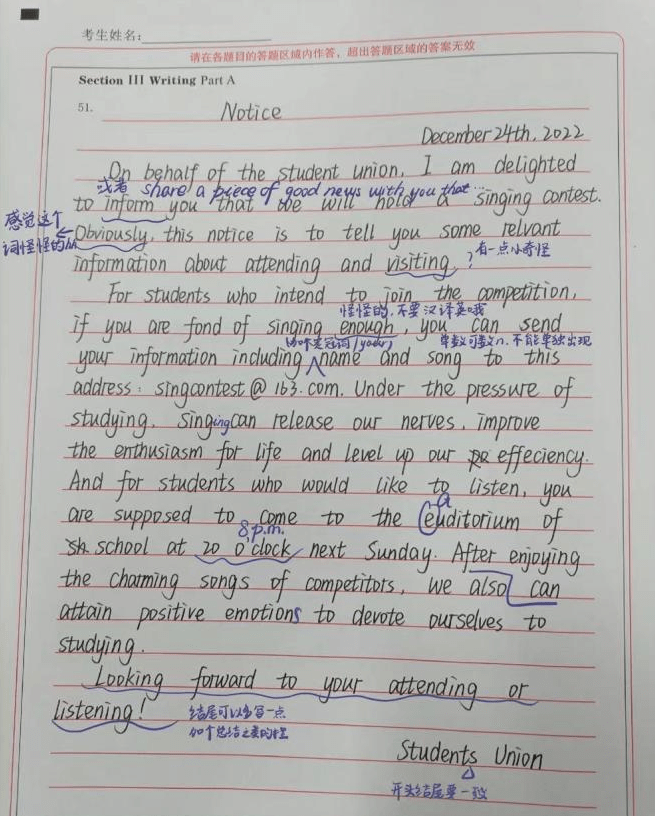 考生姓名:
请在各题目的答题区域内作答，超出答题区域的答案无效
Section III Writing Part A
51.
Notice
December 24th, 2022
On behalf of the student union, I am delighted
或者 share a piece of good news with you that...
to inform you that we will hold a singing contest.
感觉这个
词怪怪的
Obviously, this notice is to tell you some relvant
有一点小奇怪
information about attending and visiting.
?
For students who intend to join the competition,
怪怪的,不要汉译英哦
if you are fond of singing enough, you can send
加个定冠词/your)
单数可数n.不能单独出现
your information including name and song to this
address: singcontest@163.com. Under the pressure of
studying, singing can release our nerves, improve
the enthusiasm for life and level up our effeciency.
And for students who would like to listen, you
a
are supposed to come to the euditorium of
8 p.m.
school at 20 o'clock next Sunday. After enjoying
the charming songs of competitors, we also can
attain positive emotions to devote ourselves to
studying.
Looking forward to your attending or
listening!
结尾可以多写一点
加个总结之类的
Students Union
开头结尾要一致